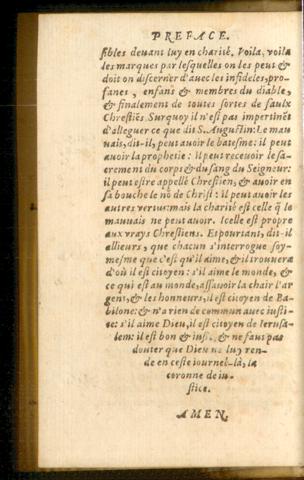 PREFACE.
sibles deuant luy en charité. Voila, voila
les marques par lesquelles on les peut &
doit on discerner d'auec les infideles, pro-
fanes, enfans & membres du diable,
& finalement de toutes sortes de faulx
Chrestiēs. Surquoy il n'est pas impertinēt
d'alleguer ce que dit S. Augustin: Le mau
uais, dit-il, peut auoir le batesme: il peut
auoir la prophetie: il peut receuoir le sa-
crement du corps & du sang du Seigneur:
il peut estre appellé Chrestien, & auoir en
sa bouche le nō de Christ: il peut auoir les
autres vertus: mais la charité est celle q̃ le
mauuais ne peut auoir. Icelle est propre
aux vrays Chrestiens. Et pourtant, dit-il
allieurs, que chacun s'interrogue soy-
mesme que c'est qu'il aime, & il trouuera
d'où il est citoyen: s'il aime le monde, &
ce qui est au monde, assauoir la chair l'ar
gent, & les honneurs, il est citoyen de Ba-
bilone: & n'a rien de commun auec iusti-
ce: s'il aime Dieu, il est citoyen de Ierusa-
lem: il est bon & iuste, & ne faut pas
douter que Dieu ne luy ren-
de en ceste iournee-là, la
coronne de iu-
stice.
AMEN.